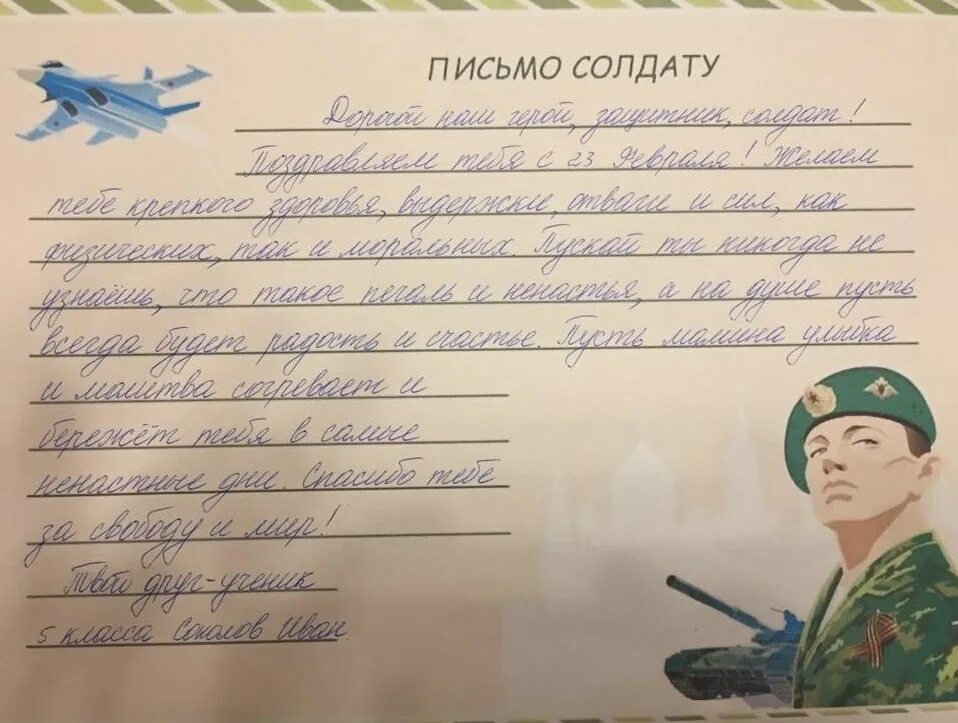 ПИСЬМО СОЛДАТУ
Дорогой наш герой, защитник, солдат!
Поздравляем тебя с 23 Февраля! Желаем
тебе крепкого здоровья, выдержки, отваги и сил, как
физических, так и моральных. Пускай ты никогда не
узнаёшь, что такое печаль и ненастья, а на душе пусть
всегда будет радость и счастье. Пусть мамина улыбка
и молитва согревает и
бережёт тебя в самые
ненастные дни. Спасибо тебе
за свободу и мир!
Твой друг-ученик
5 класса Соколов Иван.